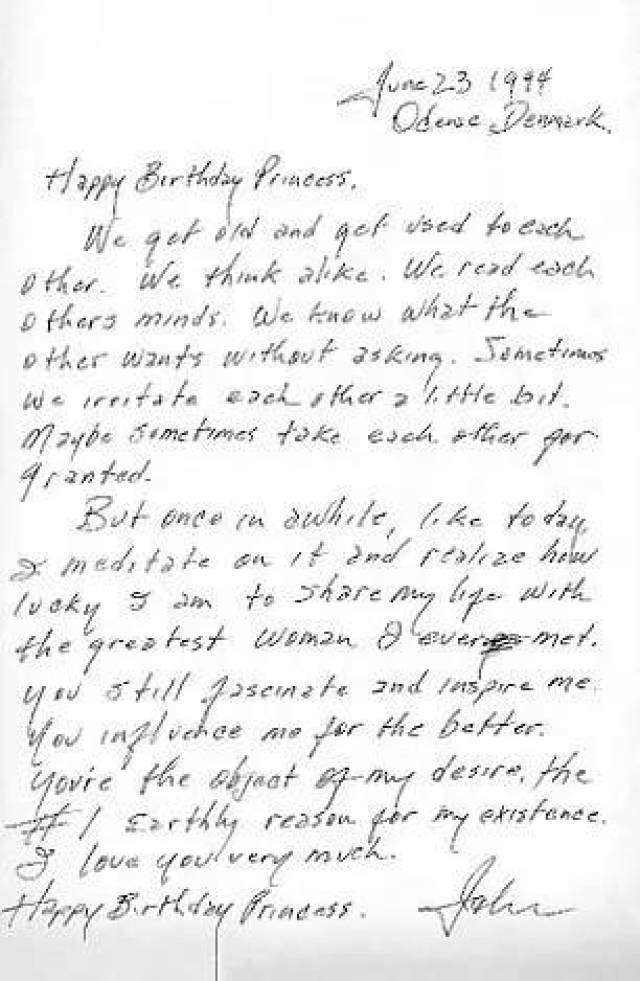 June 23 1994
Odense, Denmark.
Happy Birthday Princess,
We get old and get used to each
other. We think alike. We read each
others minds. We know what the
other wants without asking. Sometimes
we irritate each other a little bit.
Maybe sometimes take each other for
granted.
But once in awhile, like today,
I meditate on it and realize how
lucky I am to share my life with
the greatest woman I ever met.
You still fascinate and inspire me.
You influence me for the better.
You're the object of my desire, the
#1 Earthly reason for my existence.
I love you very much.
Happy Birthday Princess.
John